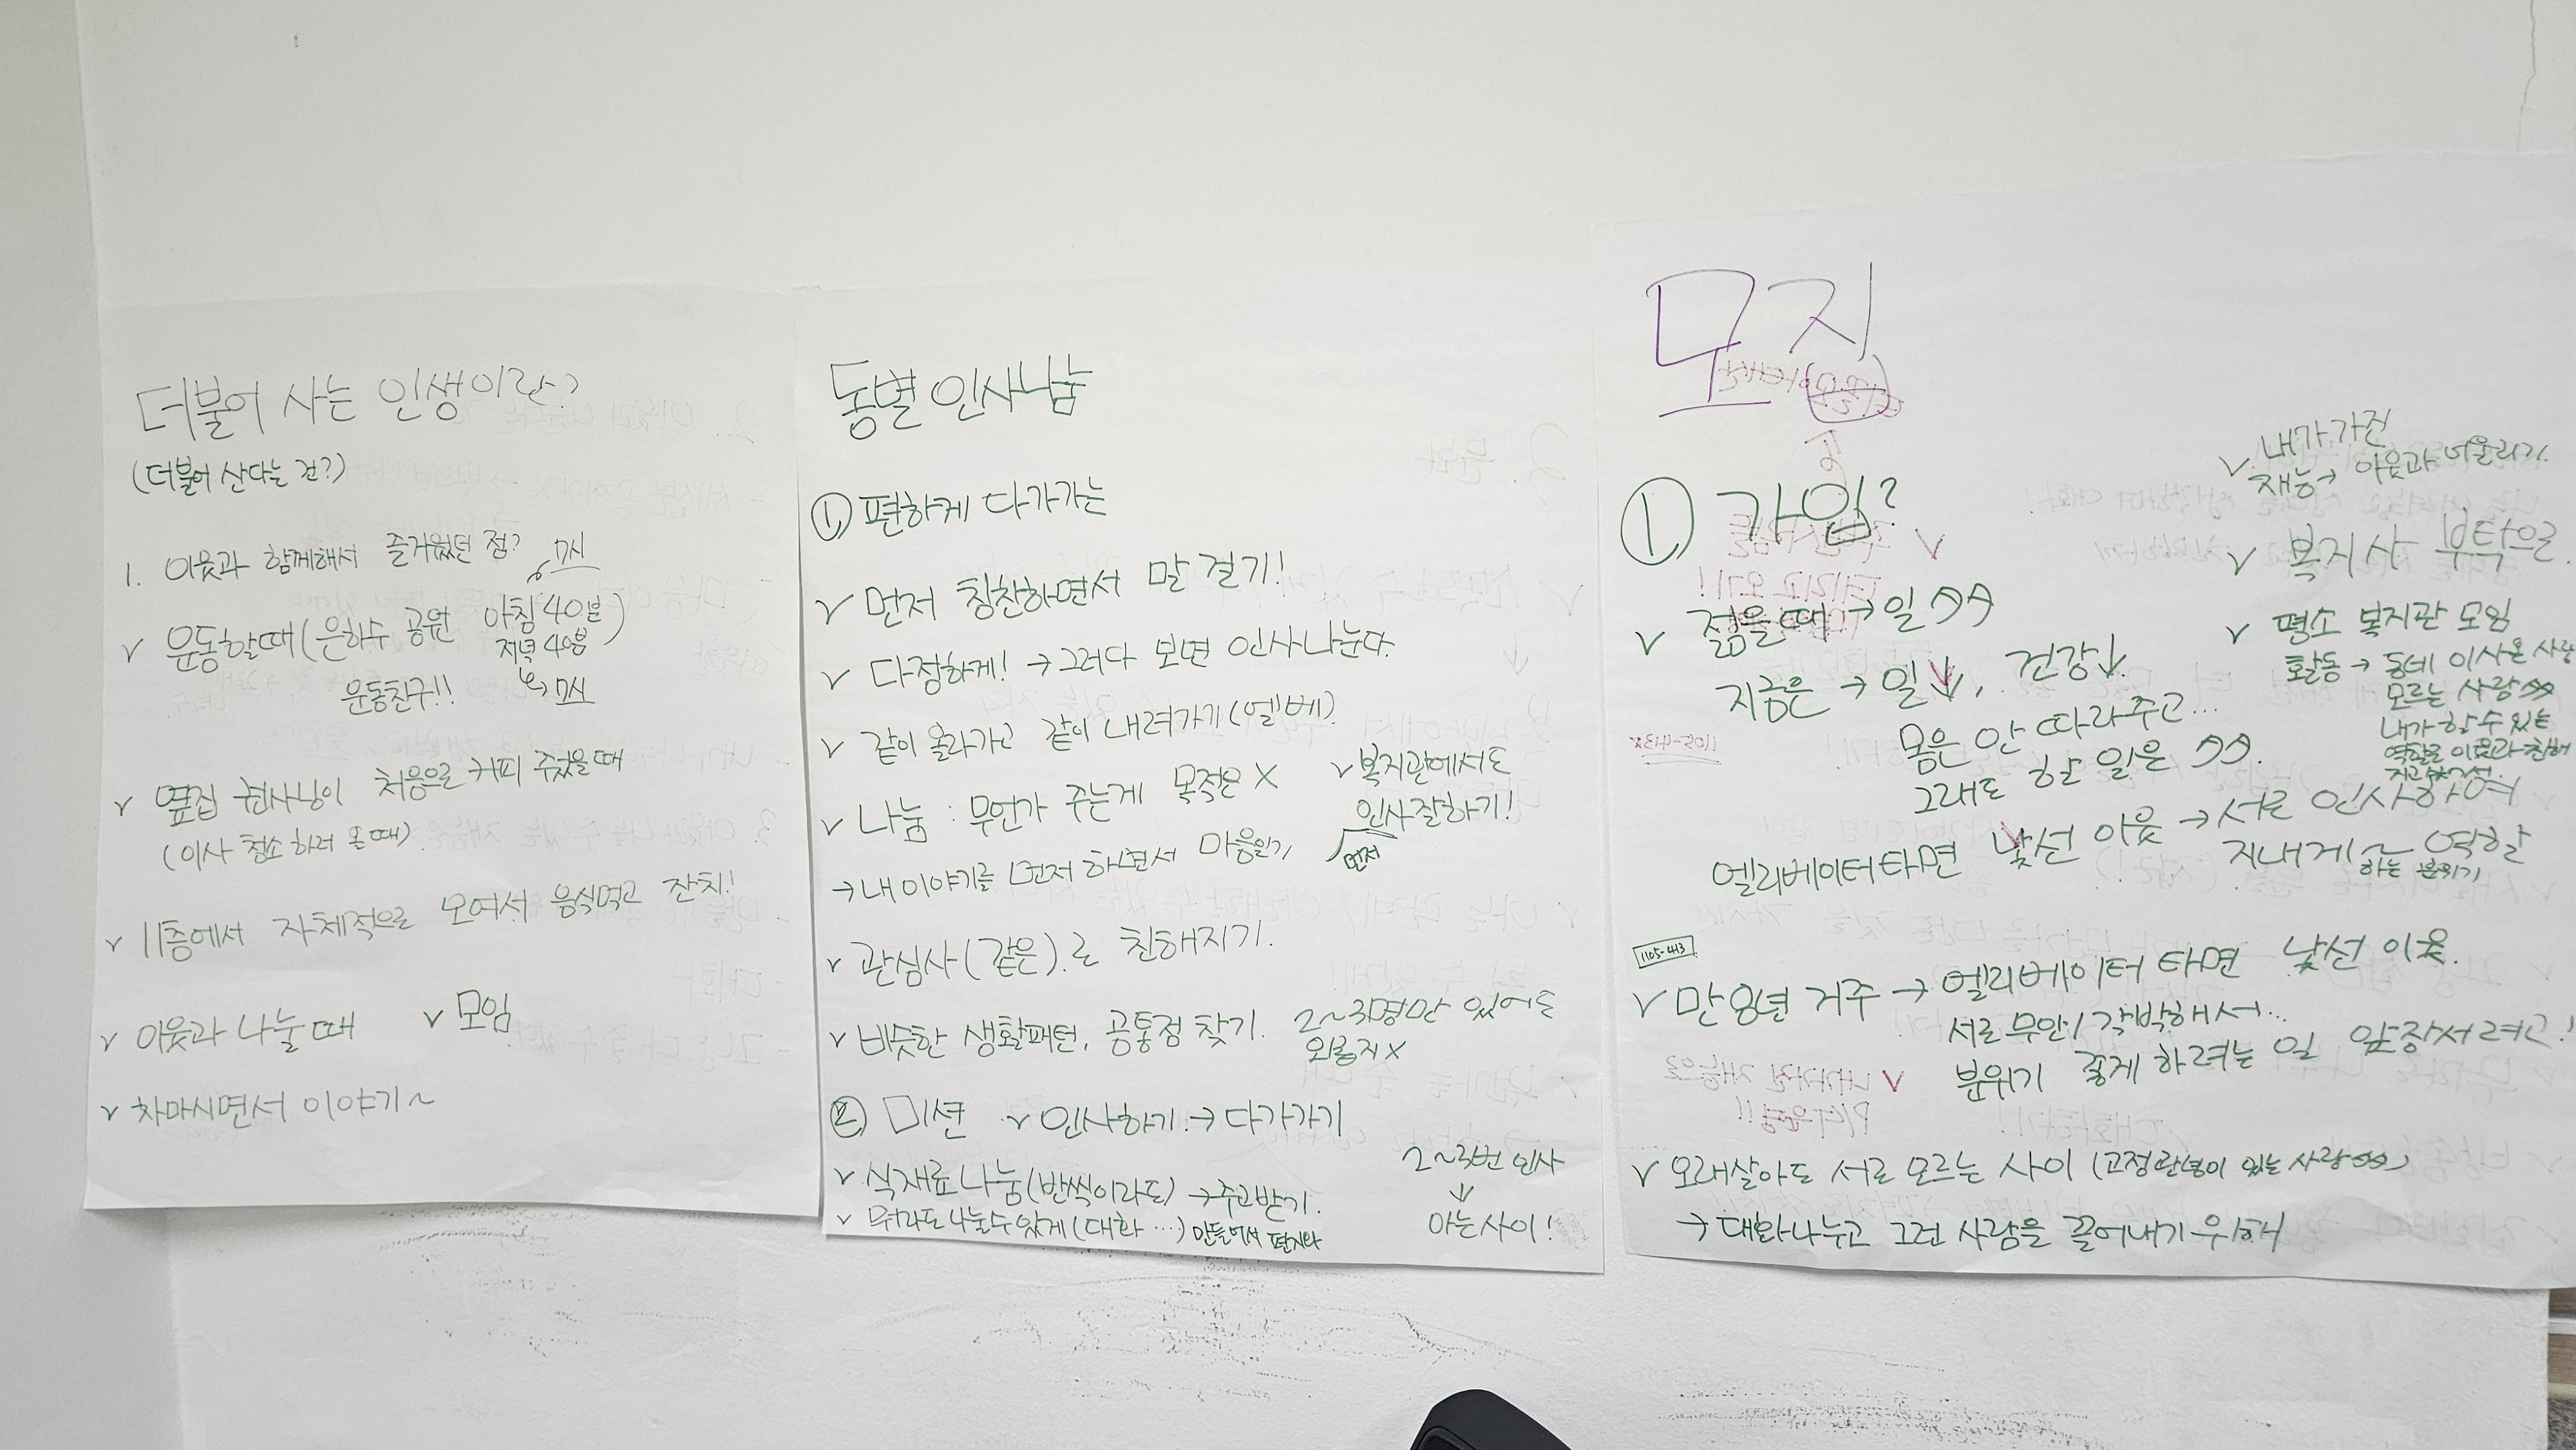 더불어 사는 인생이란?
(더불어 산다는 건?)
1. 이웃과 함께해서 즐거웠던 점?
7시
✓ 운동할때(은하수 공원 아침 40분)
저녁 40분
운동친구!! ↳ 7시
✓ 옆집 권사님이 처음으로 커피 주셨을때
(이사 청소하러 온 때)
✓ 11층에서 자체적으로 모여서 음식먹고 잔치!
✓ 이웃과 나눌 때 ✓ 모임
✓ 차마시면서 이야기~
동별 인사나눔
① 편하게 다가가는
✓ 먼저 칭찬하면서 말 걸기!
✓ 다정하게! → 그러다 보면 인사나눈다.
✓ 같이 올라가고 같이 내려가기(엘베).
✓ 나눔 : 무언가 주는게 목적은 X
→ 내 이야기를 먼저 하면서 마음열기
✓ 복지관에서도
인사잘하기!
먼저
✓ 관심사(같은)로 친해지기.
✓ 비슷한 생활패턴, 공통점 찾기.
2~3명만 있어도
외롭지 X
② 미션 ✓ 인사하기 → 다가가기
✓ 식재료 나눔(반씩이라도) → 주고받기.
✓ 뭐라도 나눌수있게(대화 …) 만들어서 편지와
2~3번 인사
↓
아는사이!
모집
① 가입?
✓ 젊을 때 → 일 ↑↑
지금은 → 일↓, 건강↓.
몸은 안 따라주고…
그래도 할 일은 ↑↑.
엘리베이터타면 낯선 이웃 → 서로 인사하며
지내게~ 역할
하는 분위기
✓ 내가 가진
재능 → 이웃과 어울리기.
✓ 복지사 부탁으로.
✓ 평소 복지관 모임
활동 → 동네 이사온 사람
모르는 사람↑↑
내가 할 수 있는
역할로 이웃과 친해
1105-413
✓ 만 8년 거주 → 엘리베이터 타면 낯선 이웃.
서로 무안/각박해서…
분위기 좋게 하려는 일 앞장서려고!
✓ 오래살아도 서로 모르는 사이 (고정관념이 있는 사람↑↑)
→ 대화나누고 그런 사람을 끌어내기 위해